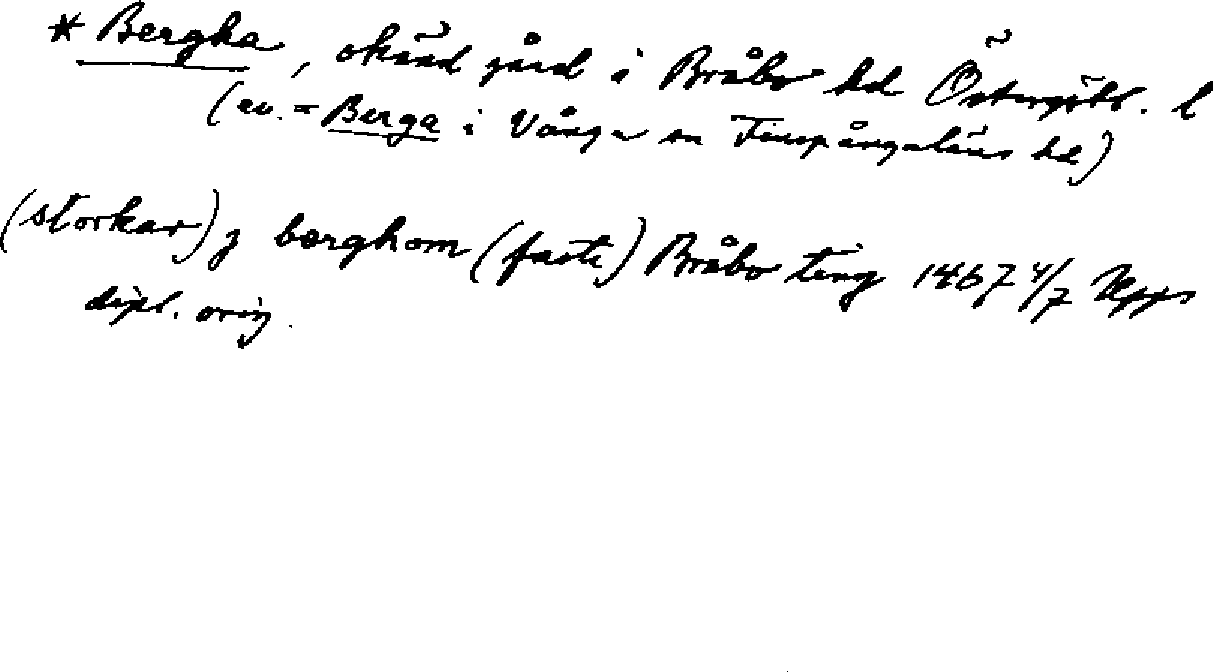 * Bergha, okänd gård i Bråbo hd Östergötl. l
(ev. = Berga i Vånga sn Finspångaläns hd)
(storkar) j berghom (faste) Bråbo ting 1467 4/7 Upps
dipl. orig.